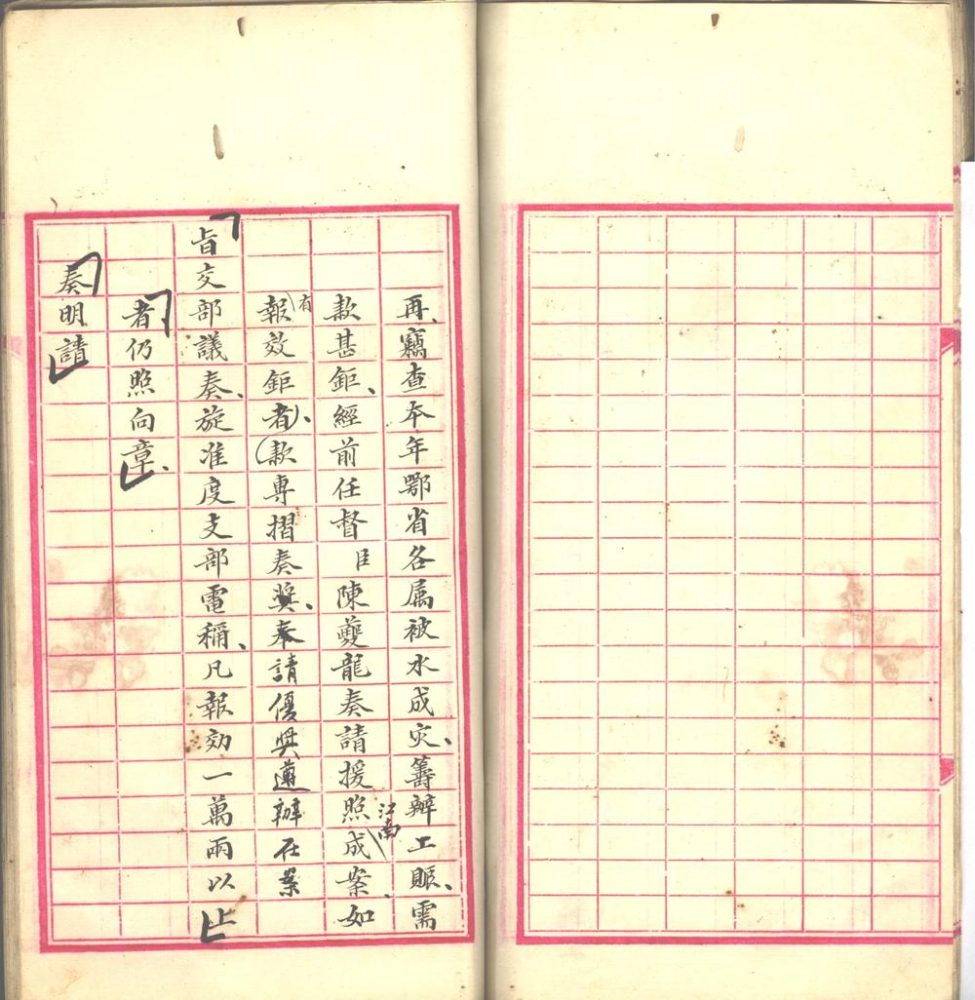 再竊查本年鄂省各属被水成灾、籌辦工賑、需
款甚鉅、經前任督臣陳夔龍奏請援照江南成案、如
有報效鉅者、款專摺奏奬、奉請優奬遵辦在案
旨交部議奏、旋准度支部電稱、凡報効一萬兩以上
者仍照向章、
奏明請